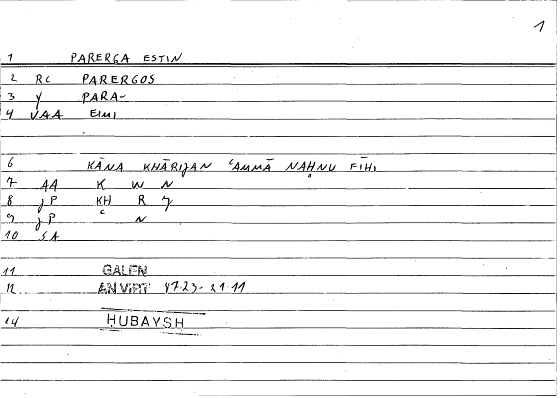 1
1 PARERGA ESTIN
2 RC PARERGOS
3 Y PARA-
4 VAA EIMI
6 KĀNA KHĀRIJAN ʿAMMĀ NAḤNU FĪHI
7 AA K W N
8 JP KH R J
9 JP ʿ N
10 SA
11 GALEN
12 AN VIRT
14 HUBAYSH